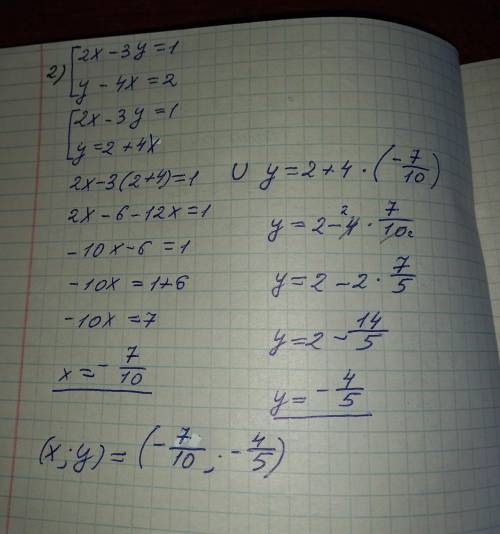 2) 2x-3y=1
y-4x=2
2x-3y=1
y=2+4x
2x-3(2+4)=1
2x-6-12x=1
-10x-6=1
-10x=1+6
-10x=7
x=-7/10
U y=2+4·(-7/10)
y=2-4·7/10
2
y=2-2·7/5
y=2-14/5
y=-4/5
(x;y)=(-7/10;-4/5)